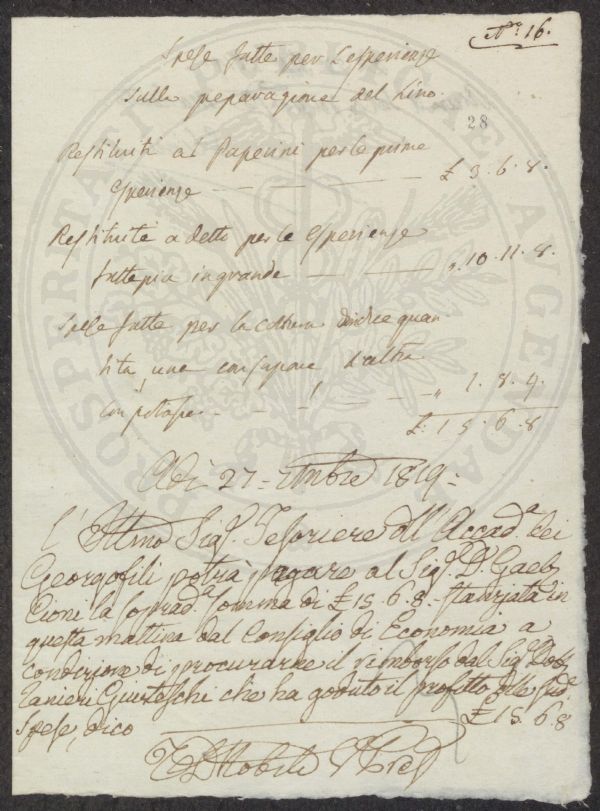 N.° 16.
Spese fatte per l'esperienze
sulla preparazione del Lino.
28
Restituiti al Paperini per le prime
esperienze — — — £ 3. 6. 8.
Restituite a detto per le esperienze
fatte più in grande — — „ 10. 11. 8.
Spese fatte per la cottura di due quan
tità, una con sapone, e l'altra
con potassa - - - - - „ 1. 8. 4.
£. 15. 6. 8
Adì 27 - 1819 -
L'Illmo Sig.r Tesoriere dell'Accad.a dei
Georgofili potrà pagare al Sig.r D.r Gaet.o
Cioni la soprad.a somma di £ 15. 6. 8. stanziata in
questa mattina dal Consiglio di Economia a
condizione di procurarne il rimborso dal Sig.r Dott.
Ranieri che ha goduto il profitto delle sud.e
Spese, dico £ 15. 6. 8
PROSPERITATI PUBLICAE AUGENDAE